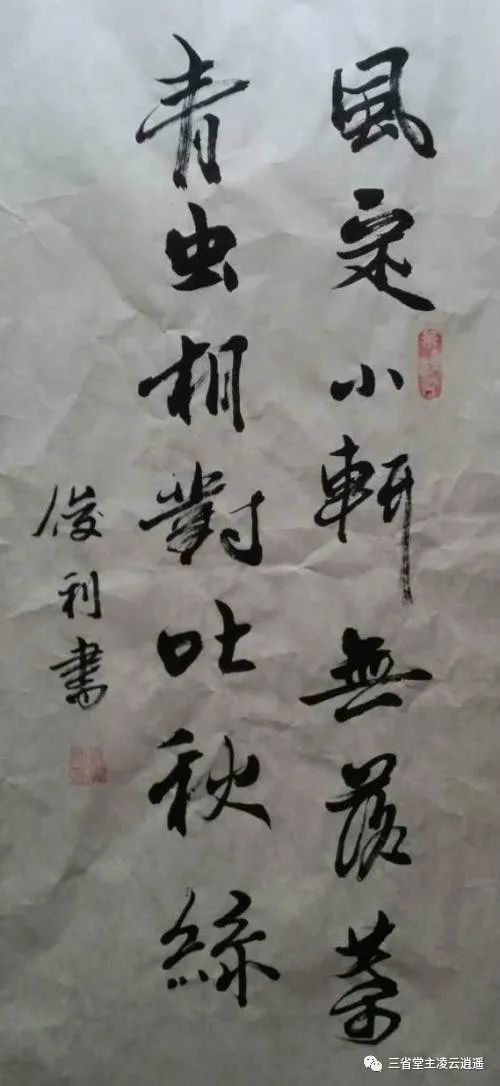 風定小軒無落葉
青虫相對吐秋絲
俊利書
三省堂主凌云逍遥